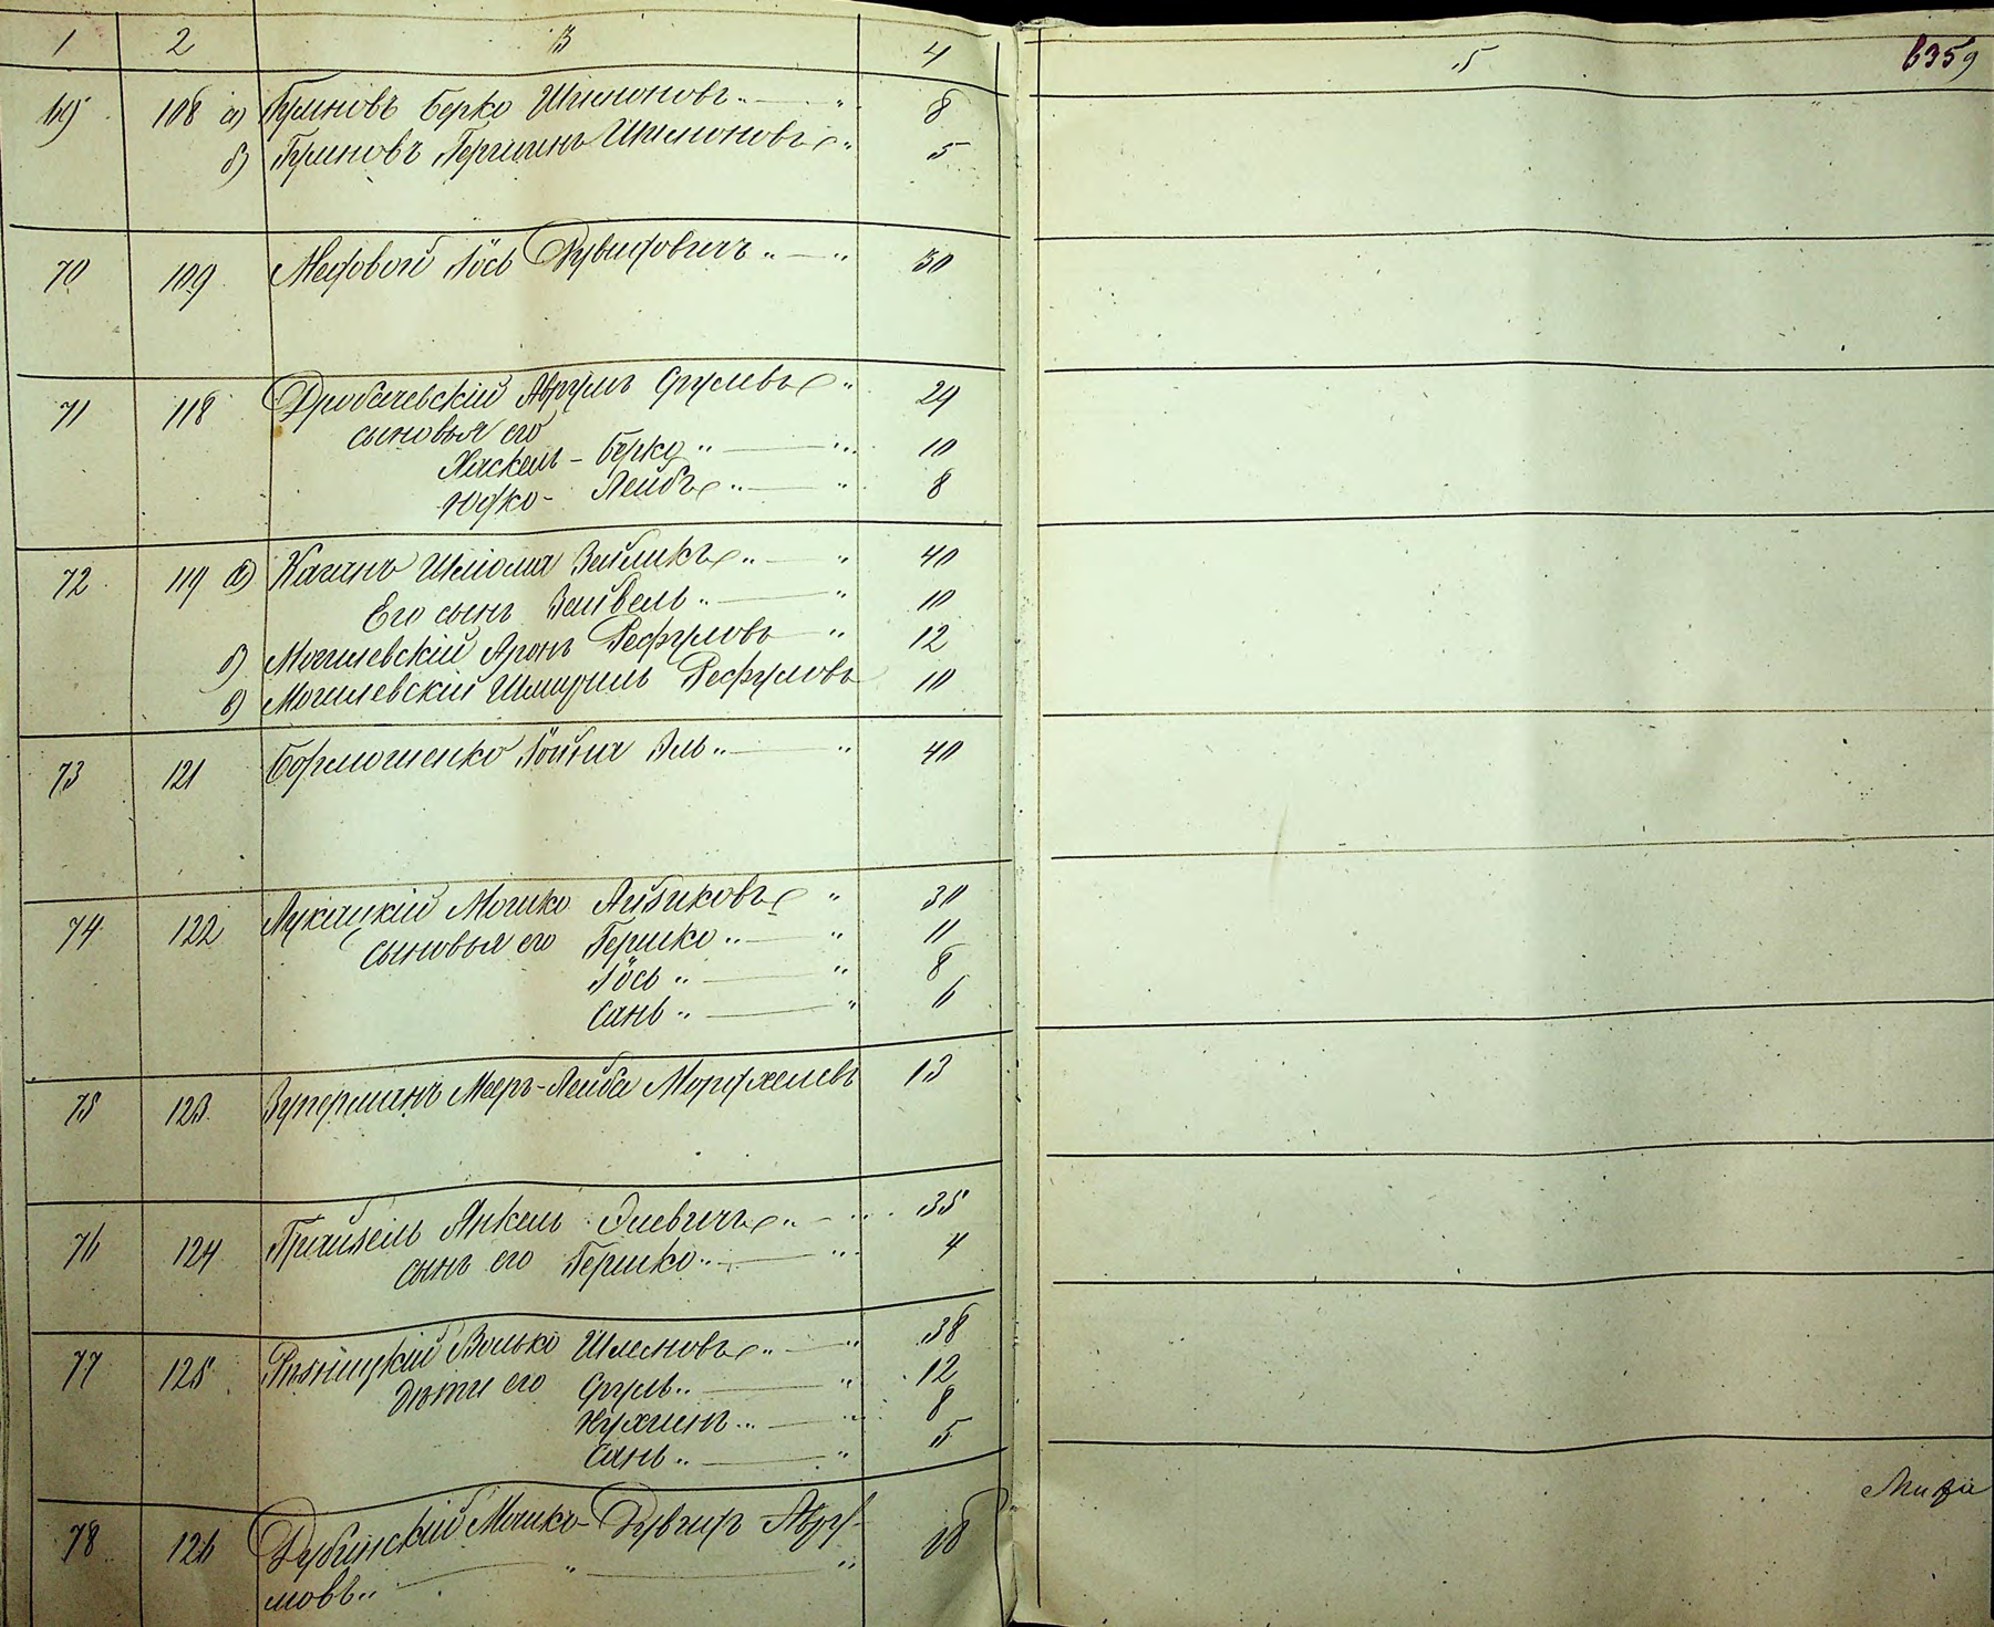 1 2 3 4 5 6359
69 108 а) Гуиновъ Берко Шимоновъ 8
б) Гуиновъ Гершенъ Шимоновъ 5
70 109 Медовой Іось Дувидовичъ 30
71 118 Дробачевскій Аврумъ Срулевъ 29
сыновья его
Хаскель - Берко 10
Юдко - Лейбъ 8
72 119 а) Каганъ Шліома Зайликъ 40
Его сынъ Зайвель 10
б) Могилевскій Аронъ Рефуловъ 12
в) Могилевскій Шмуиль Рефуловъ 10
73 121 Эль 40
74 122 Лукацкій Мошко Айзиковъ 30
сыновья его Гершко 11
Іось 8
Сань 6
75 123 Зуперманъ Мееръ-Лейба Мордхелевъ 13
76 124 Янкель Элевичъ 35
сынъ его Гершко 4
77 125 Рѣзницкій Волько Шлемовъ 38
Дѣти его Сруль 12
Нухимъ 8
Сань 5
78 126 Дубинскій Мошко-Дувидъ Авру- 18
мовъ